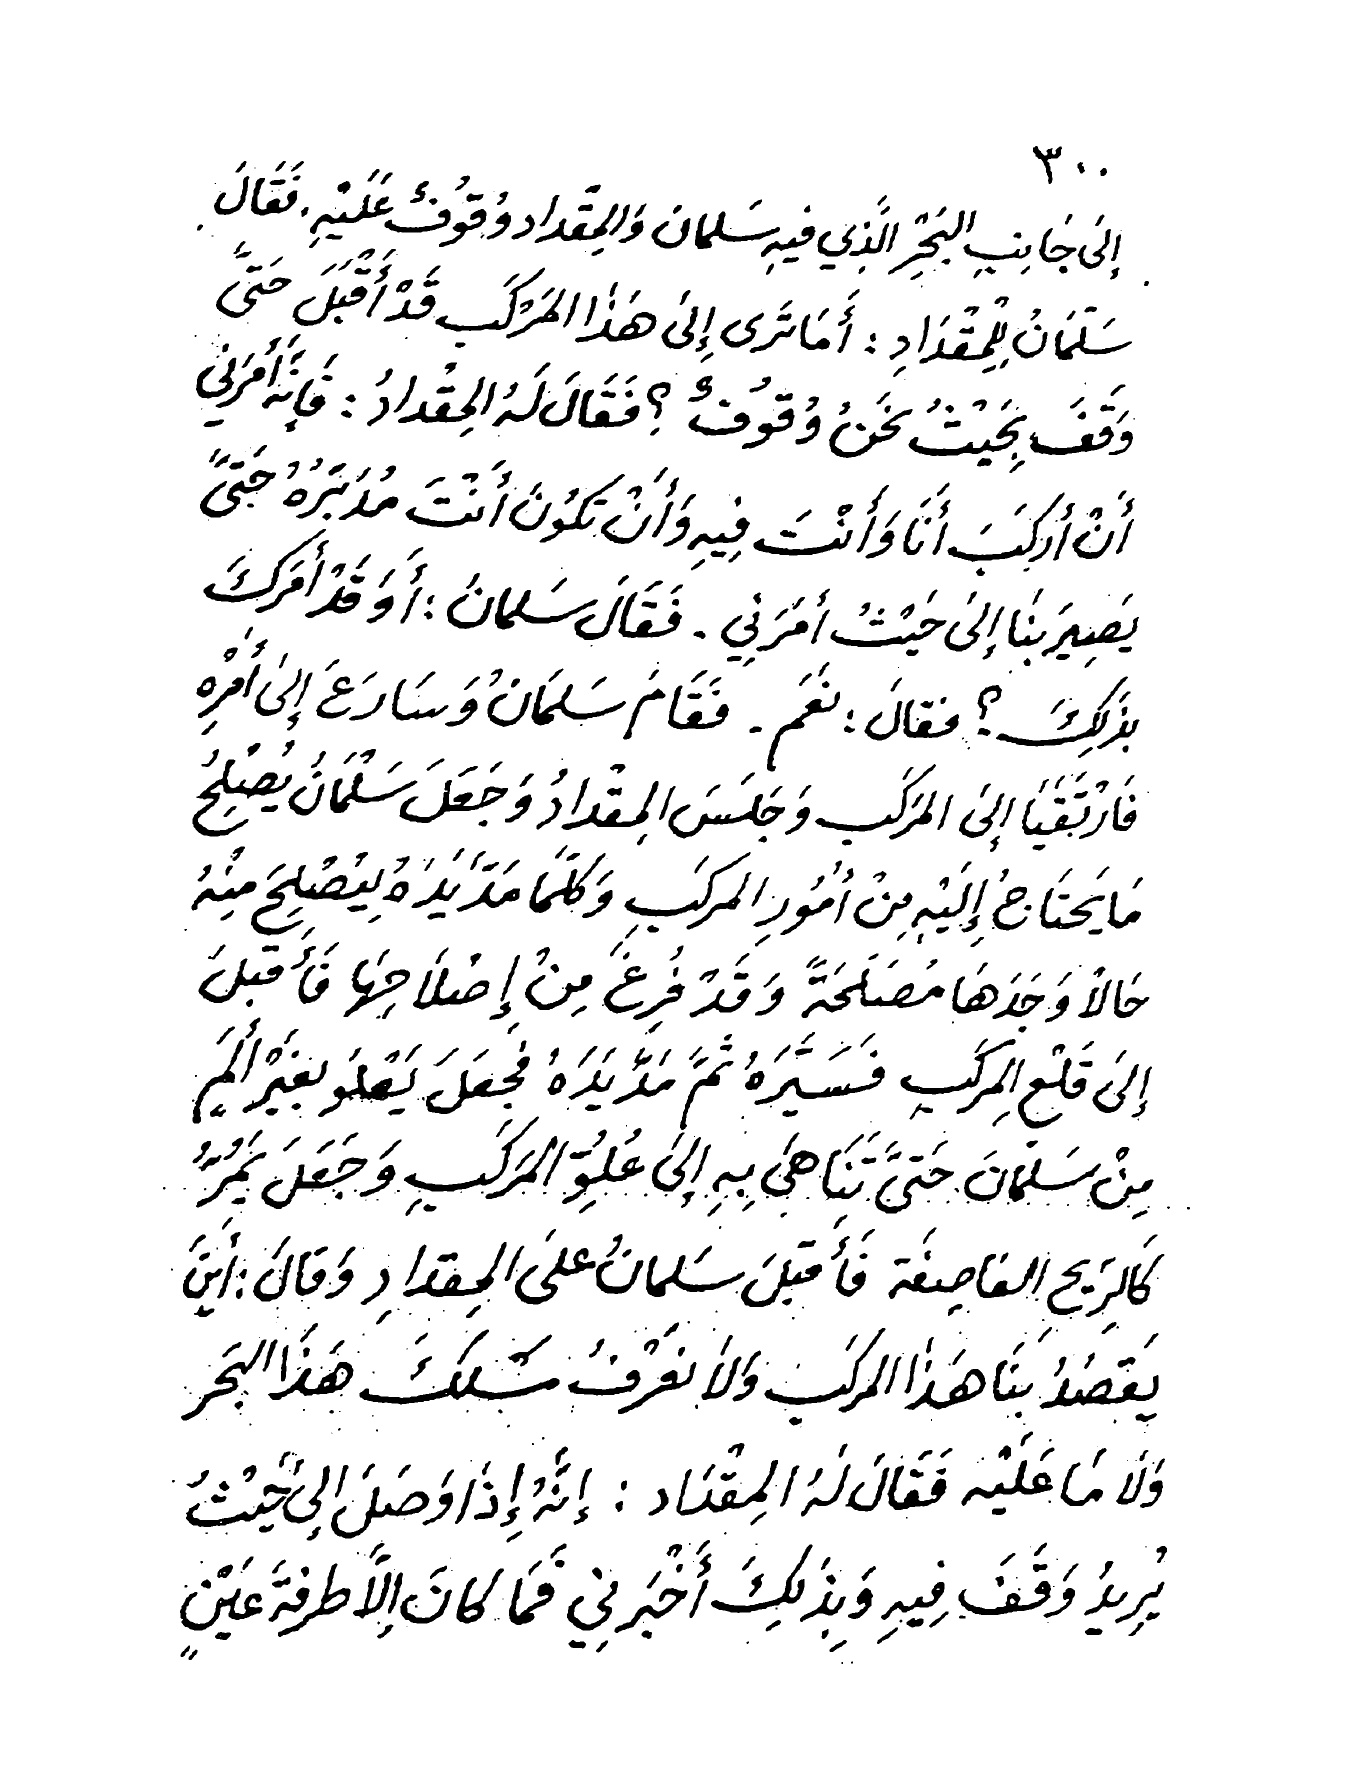 ٣٠٠
إِلَى جَانِبِ البَحْرِ الَّذِي فِيهِ سَلمان وَالمِقْداد وُقُوُفٌ عَلَيْهِ. فَقَالَ
سَلْمَانُ لِلْمِقْدَادِ : أَمَا تَرى إِلىَ هَذَا المَرْكَب قَدْ أَقْبَلَ حَتىَّ
وَقَفَ بِحَيْثُ نَحْنُ وُقوُفٌ ؟ فَقَالَ لَهُ المِقْدادُ : فَإِنَّهُ أَمَرَنِي
أَنْ أرْكَبَ أَنَا وَأَنْتَ فِيهِ وَأَنْ تَكُونَ أَنْتَ مُدَبِّرَهُ حَتىَّ
يَصِيرَ بِنَا إِلىَ حَيْثُ أمَرَنِي . فَقَالَ سَلمانُ : أَوَ قَدْ أَمَرَكَ
بِذَلِكَ ؟ فقالَ : نَعَم . فَقَامَ سَلمَانُ وَسَارَعَ إِلىَ أَمْرِهِ
فَارْتَقَيَا إِلىَ المَرْكَب وَجَلَسَ المِقْدادُ وَجَعَلَ سَلْمَانُ يُصْلِحُ
مَا يَحْتَاجُ إِلَيْهِ مِنْ أُمُورِ المَركَبِ وَكُلَّمَا مَدَّ يَدَهُ لِيُصْلِحَ مِنْهُ
حَالاً وَجَدَهَا مُصْلَحَةً وَقَدْ فُرِغَ مِنْ إِصْلاَحِهَا فَأَقْبَلَ
إِلىَ قَلْعِ المَركَبِ فَسَيَّرَهُ ثُمَّ مَدَّ يَدَهُ فَجَعَلَ يَعْلُو بِغَيْرِ أَلَمٍ
مِنْ سَلْمَانَ حَتىَّ تَنَاهىَ بِهِ إِلىَ عُلُوِّ المَرْكَبِ وَجَعَلَ يَمُرُّ
كَالرِّيحِ العَاصِفَة فَأَقْبَلَ سَلمانُ عَلىَ المِقدادِ وَقَالَ : أَيْنَ
يَقْصُدُ بِنَا هَذَا المركَب وَلاَ نَعْرِفُ مَسْلَكَ هَذَا البَحَر
وَلاَ مَا عَلَيْهِ فَقَالَ لَهُ المِقْدَاد : إِنَّهُ إِذَا وَصَلَ إِلىَ حَيْثُ
يُرِيدُ وَقَفَ فِيهِ وَبِذَلِكَ أَخْبَرنِي فَمَا كَانَ إِلاَّ طَرفَةَ عَيْنٍ